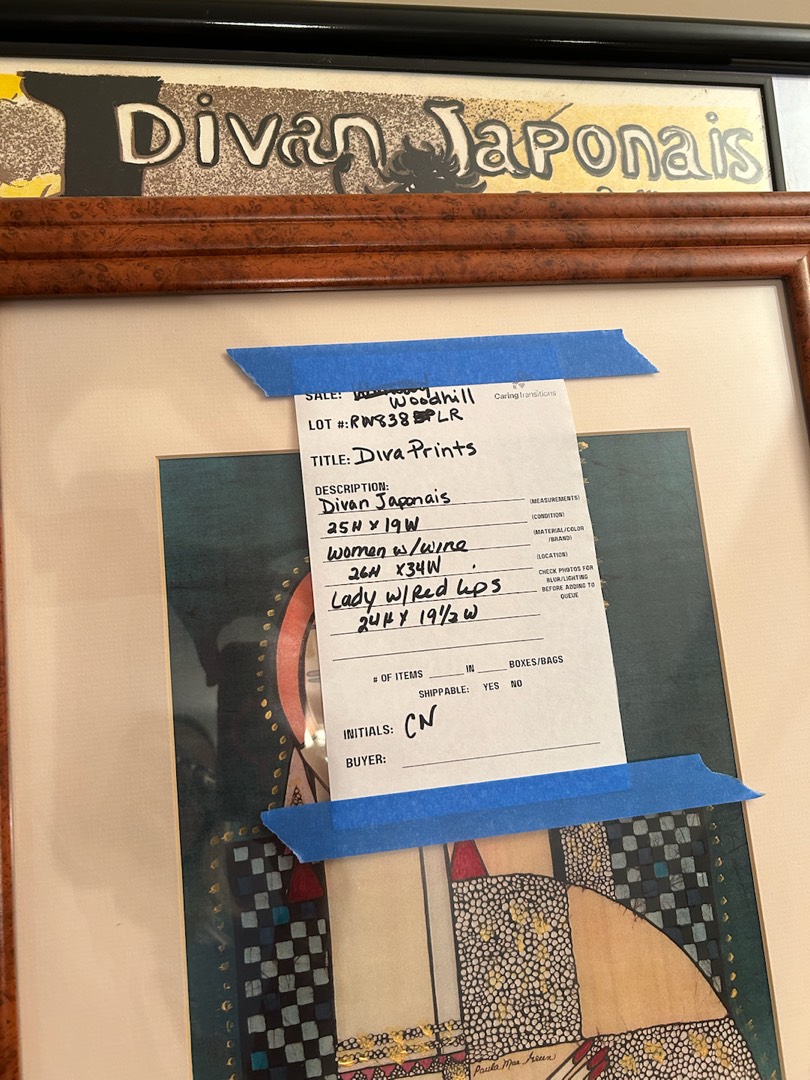 Divan Japonais
SALE: Woodhill
Caring Transitions
LOT #: RW838 LR
TITLE: Diva Prints
DESCRIPTION:
Divan Japonais
(MEASUREMENTS)
25H x 19W
(CONDITION)
Women w/wine
(MATERIAL/COLOR
/BRAND)
26H x34W
(LOCATION)
Lady w/Red Lips
CHECK PHOTOS FOR
BLUR/LIGHTING
BEFORE ADDING TO
QUEUE
24H x 19 1/2 W
# OF ITEMS ____ IN ____ BOXES/BAGS
SHIPPABLE: YES NO
INITIALS: CN
BUYER:
Paula Mae Green